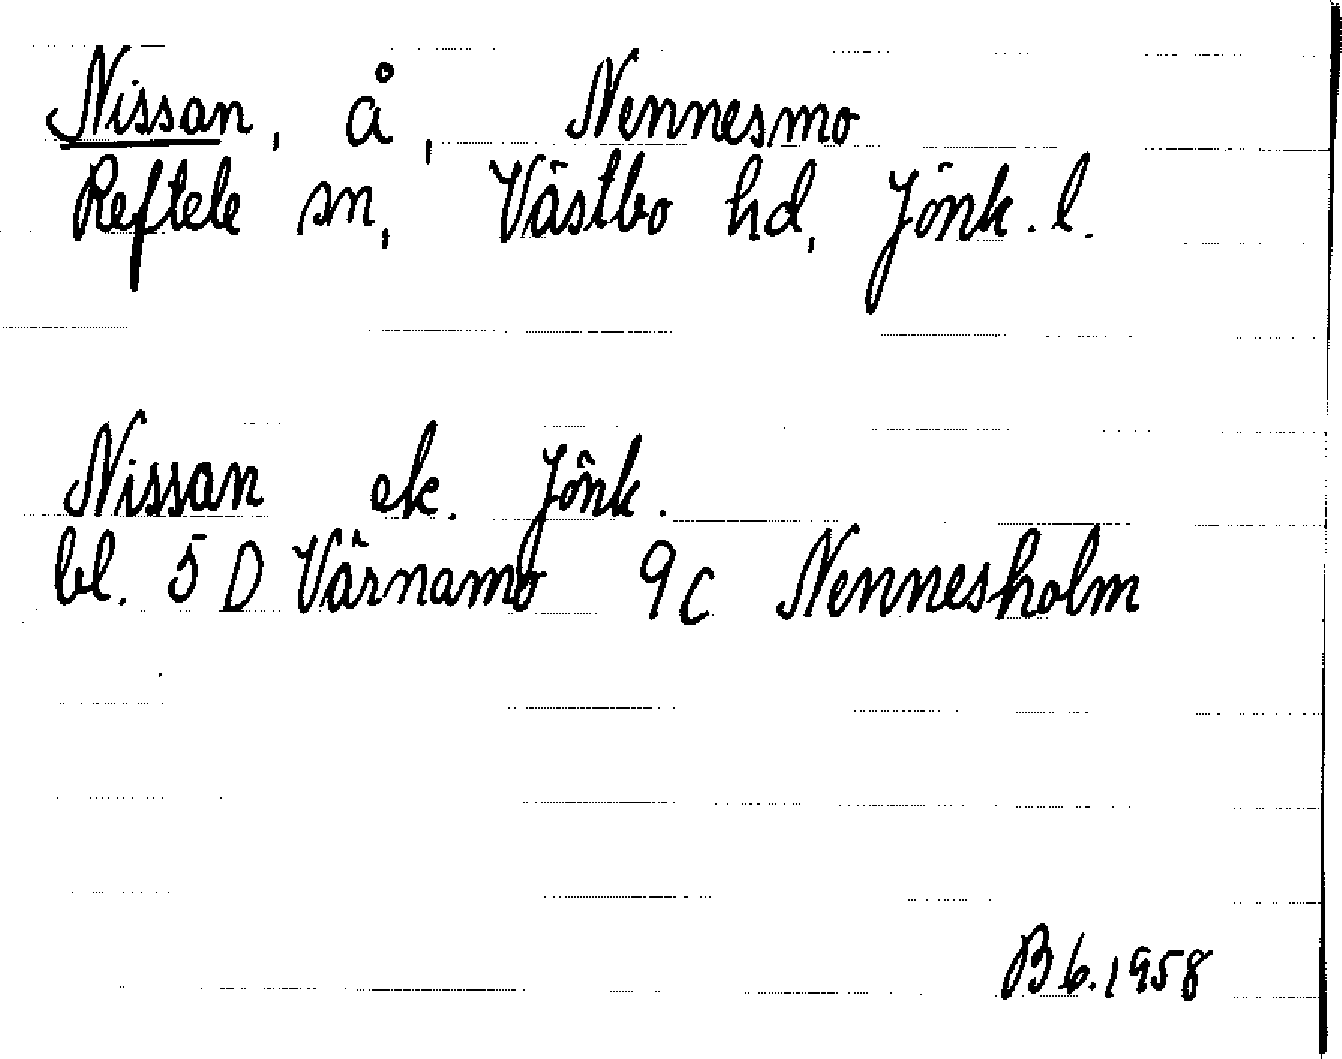 Nissan, å, Nennesmo
Reftele sn, Västbo hd, Jönk. l.
Nissan ek. Jönk.
bl. 5 D Värnamo 9c Nennesholm
B b. 1958